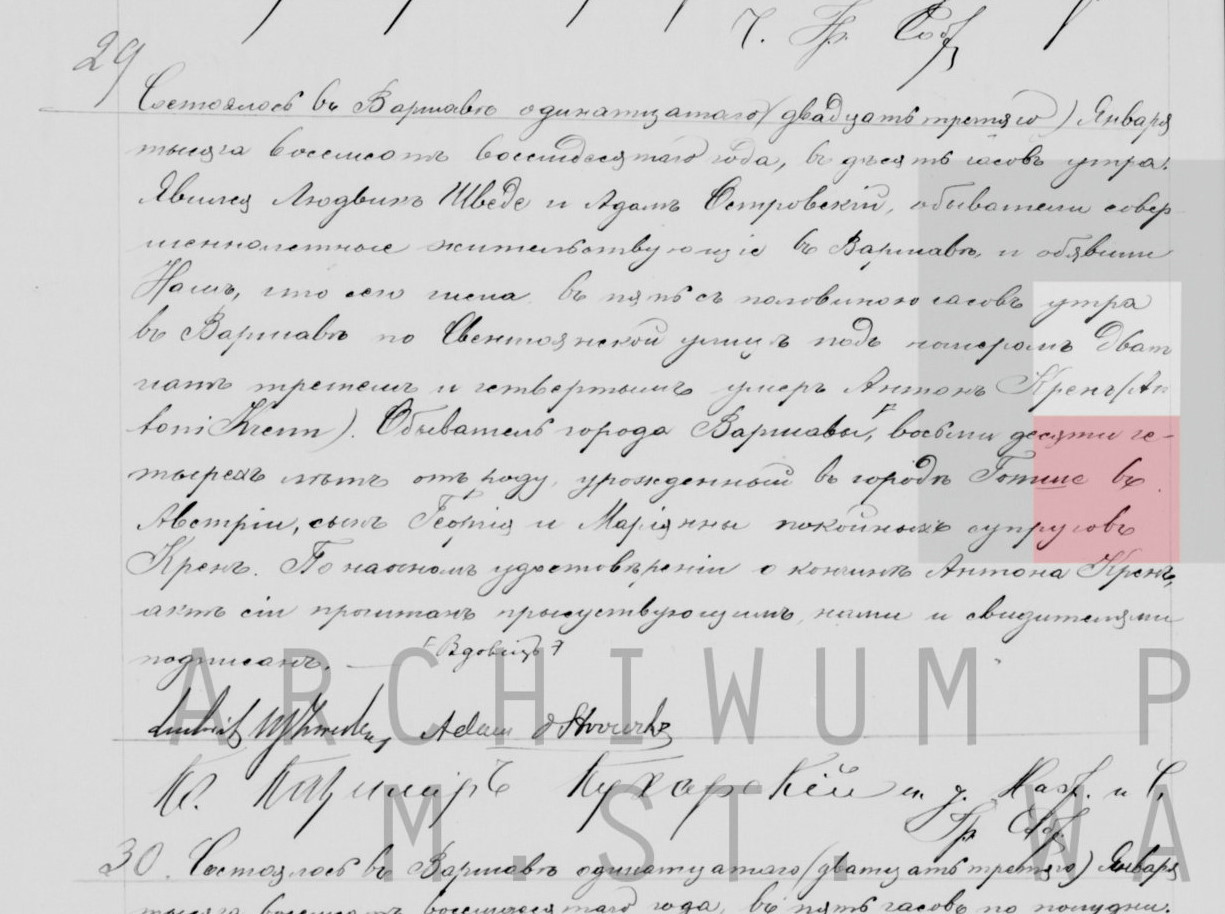 Ч. Гр. Соб.
29
Состоялось въ Варшавѣ одинатцатаго (двадцать третяго) Января
тысяча восемсотъ восемдесятаго года, въ дѣсять часовъ утра.
Явился Людвикъ Шведе и Адамъ Островскій, обыватели совер
шеннолетные жительствующіе въ Варшавѣ, и обявили
Намъ, что сего числа въ пять съ половиною часовъ утра
въ Варшавѣ по Свентоянской улицѣ подъ номеромъ дват
цать третемъ и четвертымъ умеръ Антонъ Кренъ (An
toni Krenn). Обыватель города Варшавы, восьми десяти че-
тырехъ лѣтъ отъ роду, урожденный въ городѣ въ
Австріи, сынъ Георгія и Маріянны покойныхъ супруговъ
Кренъ. По наочномъ удостовѣреніи о кончинѣ Антона Кренъ,
актъ сій прочитанъ присуствующимъ, нами и свидителями
подписанъ. — Вдовецъ
Ludwik Adam Ostrowski
Кс. Казиміръ Кухарскій и. д. Наст. и Ч.
Гр. Соб.
30. Состоялось въ Варшавѣ одинатцатаго (дватцать третяго) Января
тысяча восемсотъ восемдесятаго года, въ пять часовъ по полудни.
ARCHIWUM P
M. ST. WA